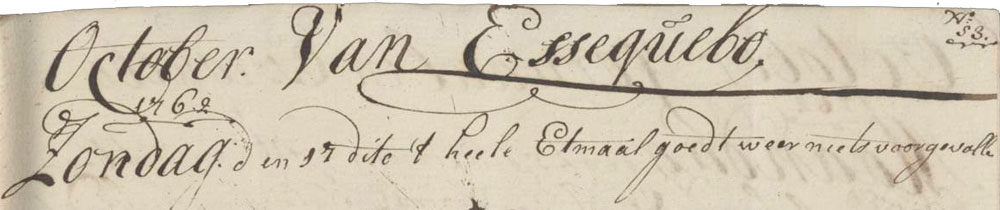 October. Van Essequebo. N:o
1762
Zondag. den 17 dito t heele Etmaal goedt weer niets voorgevalle